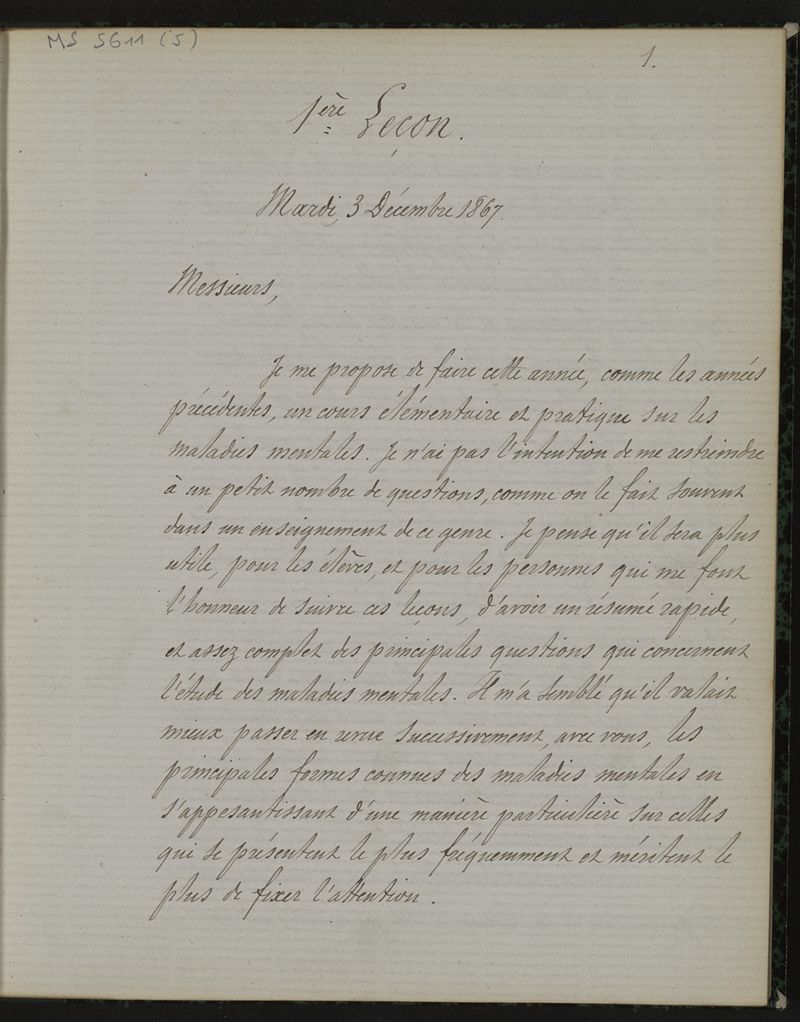 MS 5611 (5)
1.
1ère Leçon.
Mardi, 3 Décembre 1867.
Messieurs,
Je me propose de faire cette année, comme les années
précédentes, un cours élémentaire et pratique sur les
maladies mentales. Je n'ai pas l'intention de me restreindre
à un petit nombre de questions, comme on le fait souvent
dans un enseignement de ce genre. Je pense qu'il sera plus
utile, pour les élèves, et pour les personnes qui me font
l'honneur de suivre ces leçons, d'avoir un résumé rapide,
et assez complet des principales questions qui concernent
l'étude des maladies mentales. Il m'a semblé qu'il valait
mieux passer en revue successivement, avec vous, les
principales formes connues des maladies mentales en
s'appesantissant d'une manière particulière sur celles
qui se présentent le plus fréquemment et méritent le
plus de fixer l'attention.